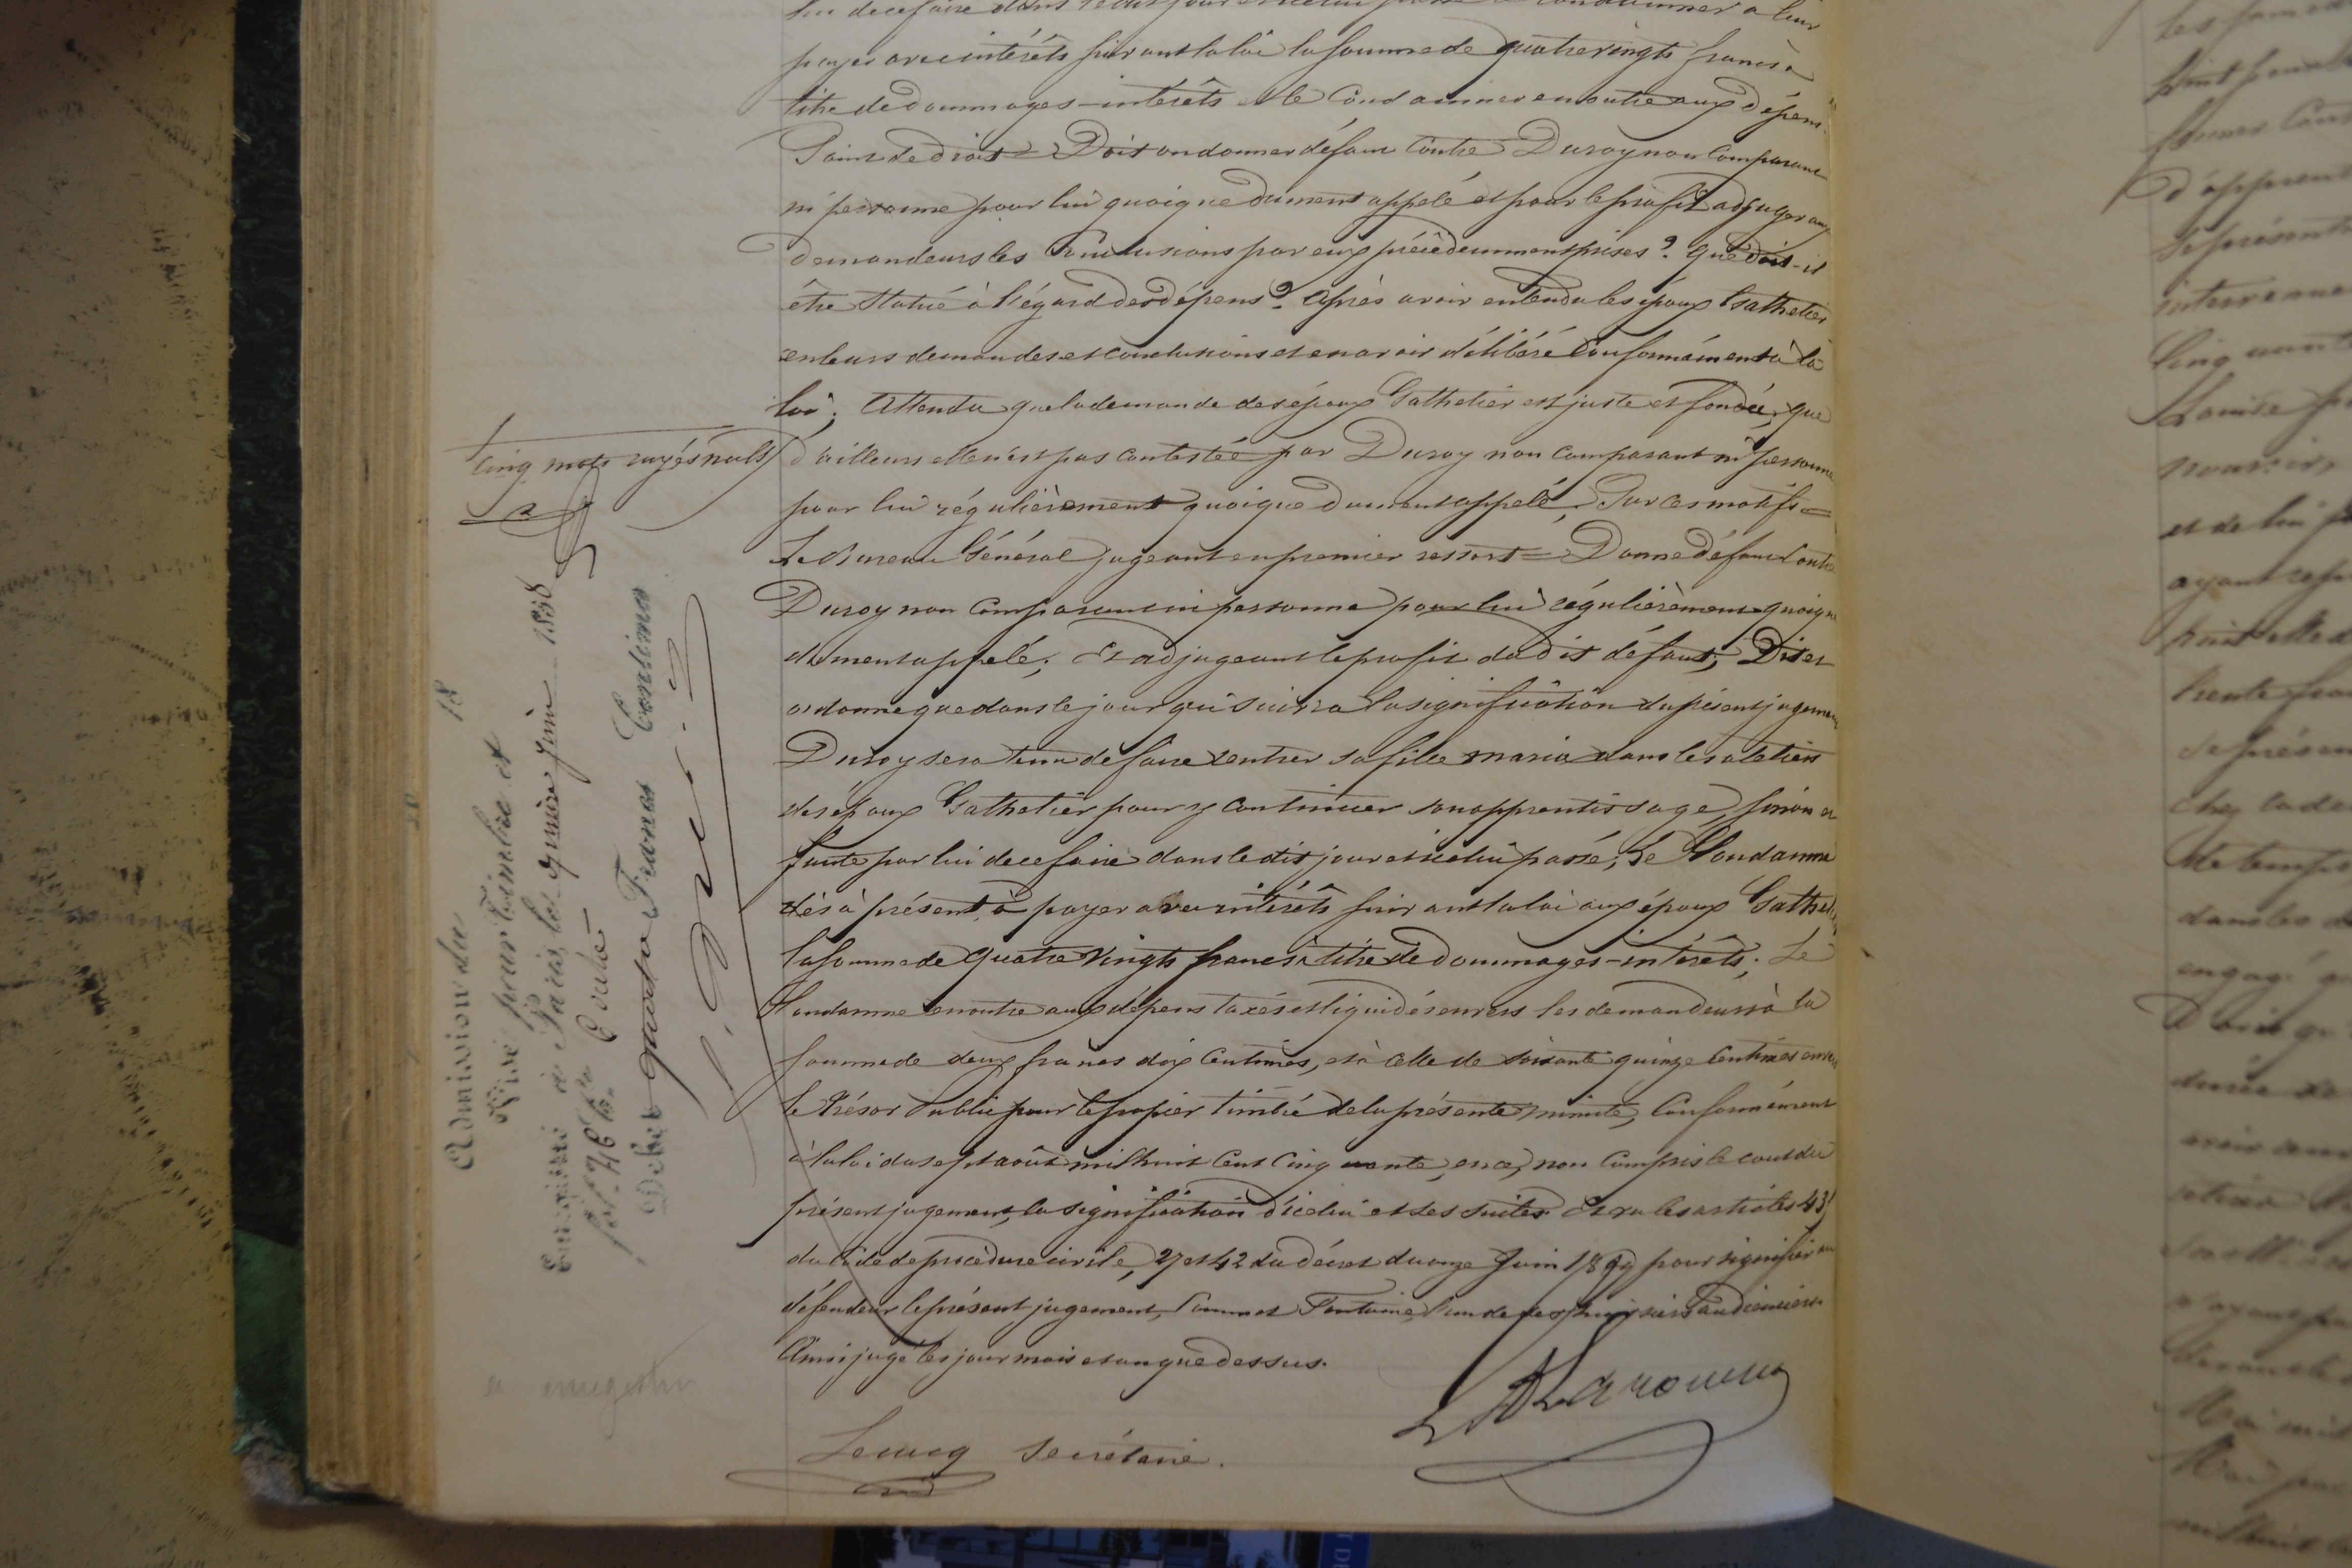 lui de ce faire dans le dit jour et icelui passé le condamner à leur
payer avec intérêts suivant la loi la somme de quatre vingts francs à
titre de dommages-intérêts et le Condamner en outre aux dépens.
Point de droit = Doit-on donner défaut contre Duroy non Comparant
ni personne pour lui quoique dument appelé et pour le profit adjuger aux
demandeurs les Conclusions par eux précédemment prises ? Que doit-il
être statué à l'égard des dépens ? Après avoir entendu les époux Gathelier
en leurs demandes et conclusions et en avoir délibéré Conformément à la
loi ; Attendu que la demande des époux Gathelier est juste et fondée, que
d'ailleurs elle n'est pas Contestée par Duroy non Comparant ni personne
pour lui régulièrement quoique dument appelé, Par ces motifs =
Le Bureau Général jugeant en premier ressort = Donne défaut Contre
Duroy non Comparant ni personne pour lui régulièrement quoique
dument appelé ; Et adjugeant le profit du dit défaut ; Dit et
ordonne que dans le jour qui suivra la signification du présent jugement
Duroy sera tenu de faire rentrer sa fille Maria dans les ateliers
des époux Gathelier pour y continuer son apprentissage, sinon et
faute par lui de ce faire dans le dit jour et icelui passé ; Le Condamne
dès à présent à payer avec intérêts suivant la loi aux époux Gathelier
la somme de quatre vingts francs à titre de dommages-intérêts ; Le
Condamne en outre aux dépens taxés et liquidés envers les demandeurs à la
somme de deux francs dix Centimes, et à celle de soixante quinze Centimes envers
le Trésor Public pour le papier timbré de la présente minute, Conformément
à la loi du sept août mil huit Cent Cinquante, en ce, non Compris le coût du
présent jugement, la signification d'icelui et ses suites Et vu les articles 435
du Code de procédure civile, 27 et 42 du décret du onze Juin 1809 pour signifier au
défendeur le présent jugement, Commet l'un de ses huissiers audienciers
Ainsi jugé les jour mois et an que dessus.
Lecucq Secrétaire.
Cinq mots rayés nuls
Visé pour Timbre et
Enregistré à Paris, le quinze Juin 1858
Débet quatre Francs Centimes